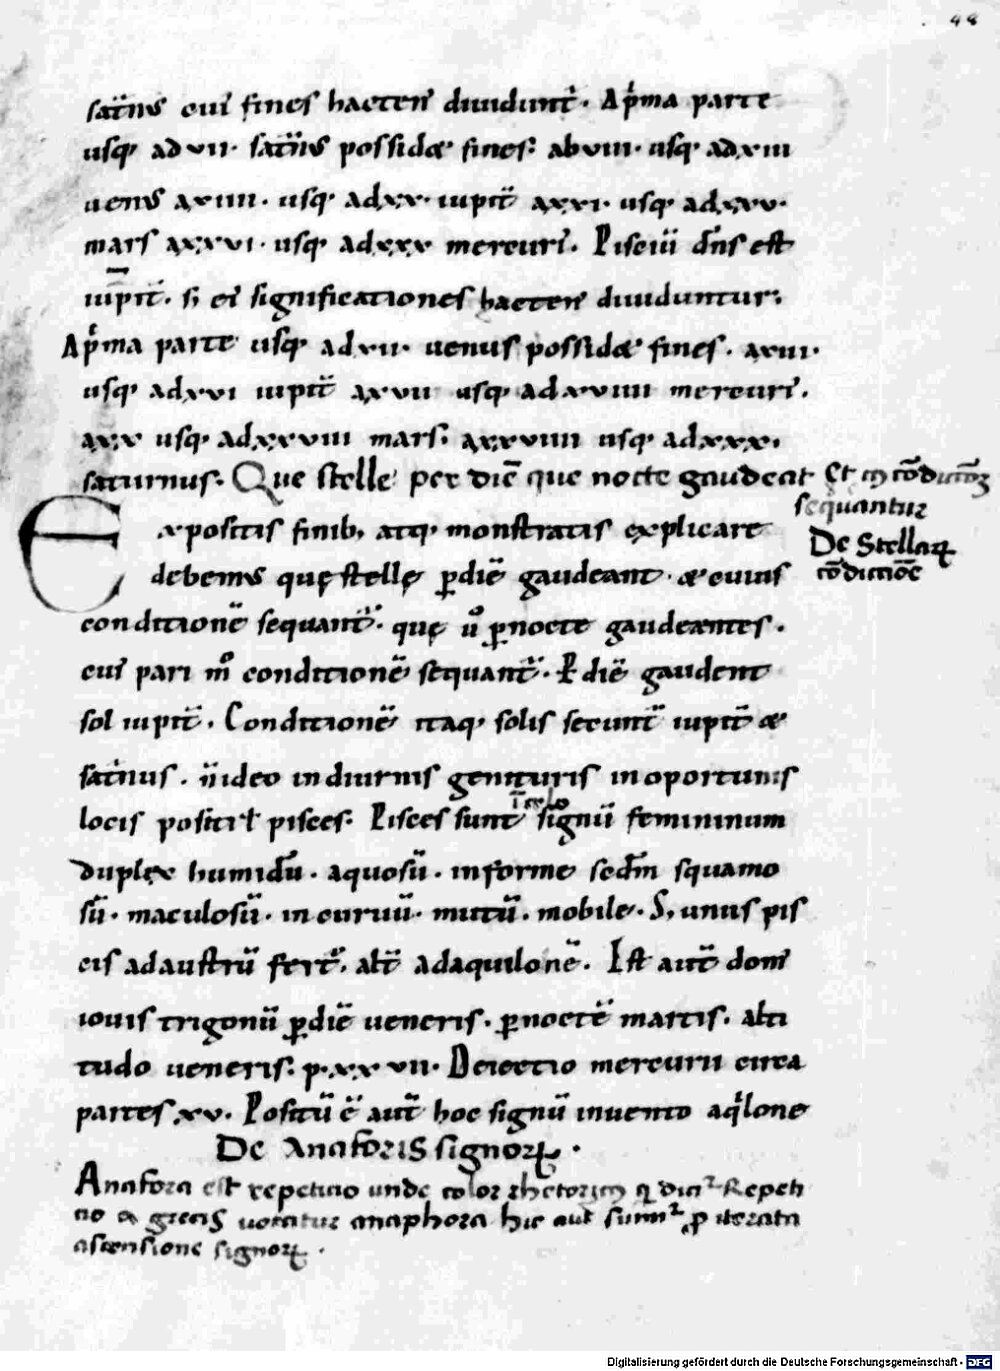 48
satn̄s cui' fines hacten' diuidunt̄. Ap̄ma parte
usq; ad vii. satn̄s possidet fines: ab viii. usq; ad xiii
uenus a xiiii. usq; ad xx. iupit̄ a xxi. usq; ad xxv.
mars a xxvi. usq; ad xxx mercuri'. Pisciū dn̄s est
iupit̄. si ei' significationes hacten' diuiduntur;
Ap̄ma parte usq; ad xii. uenus possidet fines. a xiii.
usq; ad xvi iupit̄ a xvii usq; ad xviiii mercuri'.
a xx usq; ad xxviii mars; a xxviiii usq; ad xxx.
saturnus. Que stelle per diē que nocte gaudeāt Et cōdictōz
sequantur
De Stellaꝝ
cōdictiōe
Expositis finib; atq; monstratis explicare
debemus quę stellę p̱ diē gaudeant. et cuius
conditionē sequant̄. quę ū p̱ nocte gaudeantes.
cui' pari m̊ conditionē sequant̄. P̱ diē gaudent
sol iupit̄. Conditionē itaq; solis secunt̄ iupit̄ et
sat̄nus. ideo in diurnis genituris in oportunis
locis posit̄ pisces; Pisces sunt ī celo signū femininum
duplex humidū. aquosū. informe sedm̄ squamo
sū. maculosū. incuruū. mutū. mobile. S; unus pis
cis ad austrū fert̄. alt̄ ad aquilonē. Est aut̄ dom'
iouis trigonū p̱ diē ueneris. p̱ noctē martis. alti
tudo ueneris; p. xxvii. Deiectio mercurii circa
partes xv. Positū ē aut̄ hoc signū inuento aq̇lone
De Anaforis signoꝝ.
Anafora est repeticio unde color rhetoricꝰ q̇ dicit̄ Repeti
tio et grecis uocatur anaphora hic aut̄ sumit̄ p̱ iterata
ascensione signoꝝ.
Digitalisierung gefördert durch die Deutsche Forschungsgemeinschaft - DFG